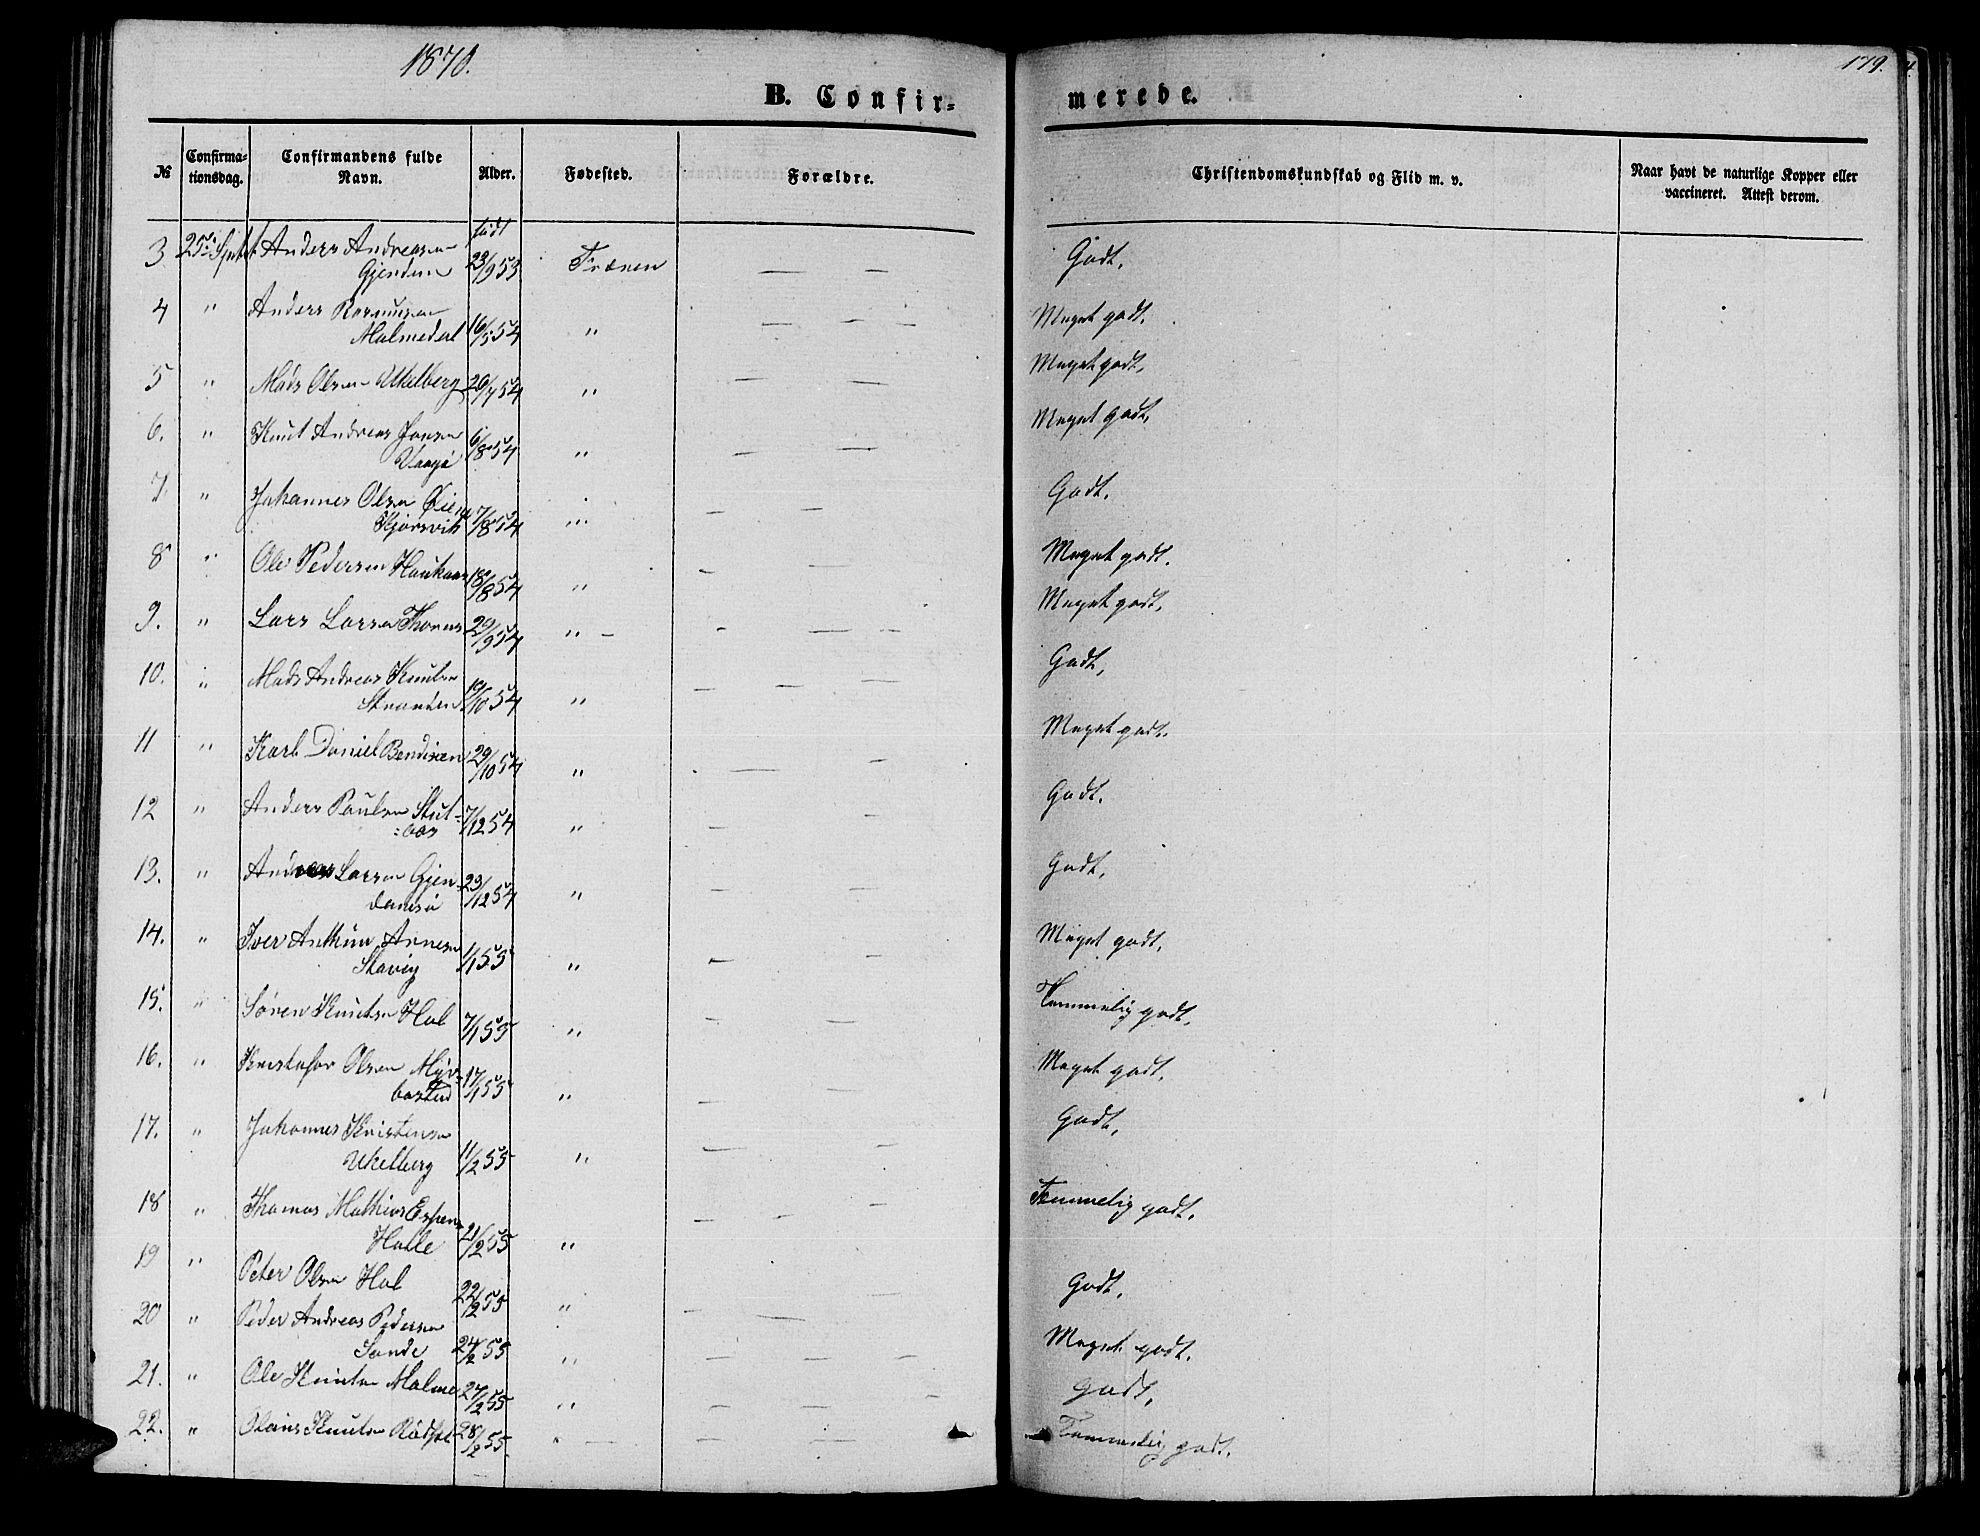 1870.
179.
B. Confir-
merede.
№
Confirma-
tionsdag.
Confirmandens fulde
Navn.
Alder.
Fødested.
Forældre.
Christendomskundskab og Flid m. v.
Naar havt de naturlige Kopper eller
vaccineret. Attest derom.
født
3 25de Septbr Anders Andreasen
Gjendem 23/9 53 Frænen — — Godt.
4 " Anders Rasmusen
Malmedal 16/5 54 " — — — Meget godt.
5 " Mads Olsen Ukelberg 26/7 54 " — — Meget godt.
6. " Knut Andreas Jonsen
Vaagø 6/8 54 " — — Meget godt.
7 " Johannes Olsen Øien
Kjørsvik 7/8 54 " — — Godt.
8 " Ole Pedersen Haukaas 18/8 54 " — — Meget godt.
9. " Lars Larsen Thornes 29/9 54 " — - — — Meget godt.
10. " Mads Andreas Knutsen
Stranden 19/10 54 " — — — Godt,
11 " Karl Daniel Bendixen 29/10 54 " — — Meget godt.
12 " Anders Paulsen Stut-
:aas 7/12 54 " — — Godt.
13. " Andreas Larsen Gjen-
damsø 23/12 54 " — — Godt,
14. " Iver Anthon Arnesen
Stavig 1/1 55 " — — Meget godt,
15. " Søren Knutsen Hol 7/1 55 " — — Temmelig godt.
16. " Kristofer Olsen Myr-
bostad 17/1 55 " — — Meget godt,
17. " Johannes Kristensen
Ukelberg 11/2 55 " — — Godt,
18 " Thomas Mathias Espens
Halle 21/2 55 " — — — Temmelig godt.
19 " Peter Olsen Hol 22/2 55 " — — — Godt.
20 " Peder Andreas Pedersen
Sande 24/2 55 " — — — Meget godt.
21. " Ole Knutsen Malme 27/2 55 " — — — Godt,
22. " Olaus Knutsen 28/2 55. " — — — Temmelig godt.